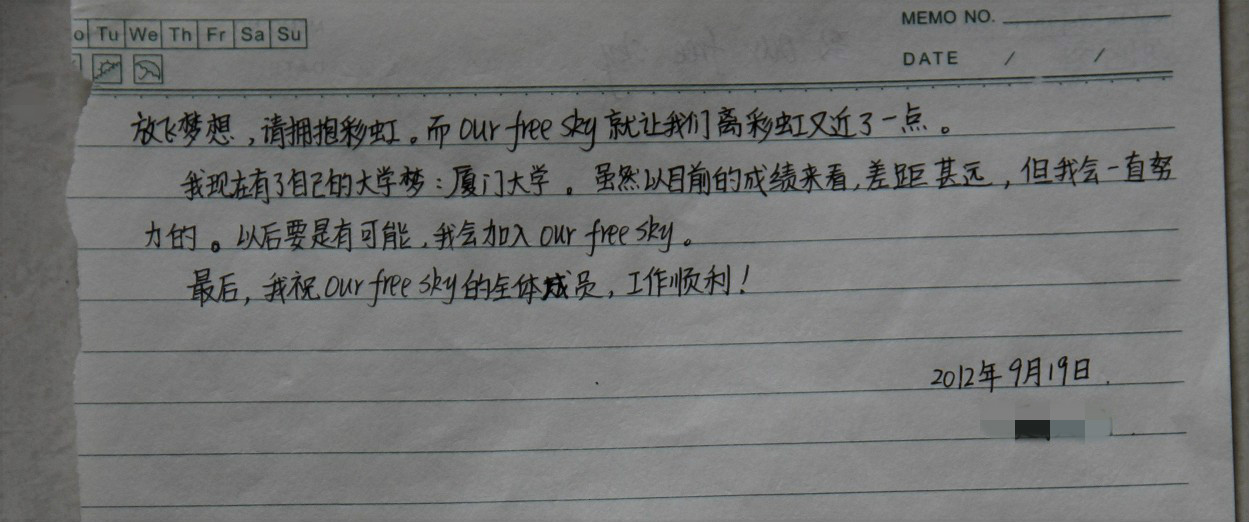 o Tu We Th Fr Sa Su
MEMO NO.
DATE / /
放飞梦想，请拥抱彩虹。而our free sky就让我们离彩虹又近了一点。
我现在有了自己的大学梦：厦门大学。虽然以目前的成绩来看，差距甚远，但我会一直努
力的。以后要是有可能，我会加入our free sky。
最后，我祝our free sky的全体成员，工作顺利！
2012年9月19日.